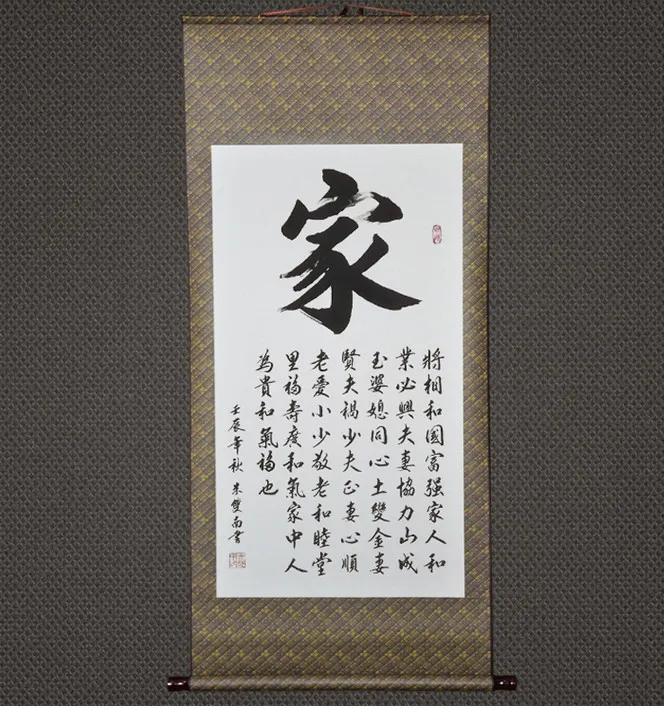 家
將相和國富强家人和
業必興夫妻協力山成
玉婆媳同心土變金妻
賢夫禍少夫正妻心順
老愛小少敬老和睦堂
里福壽度和氣家中人
為貴和氣福也
壬辰年秋 朱雙南書